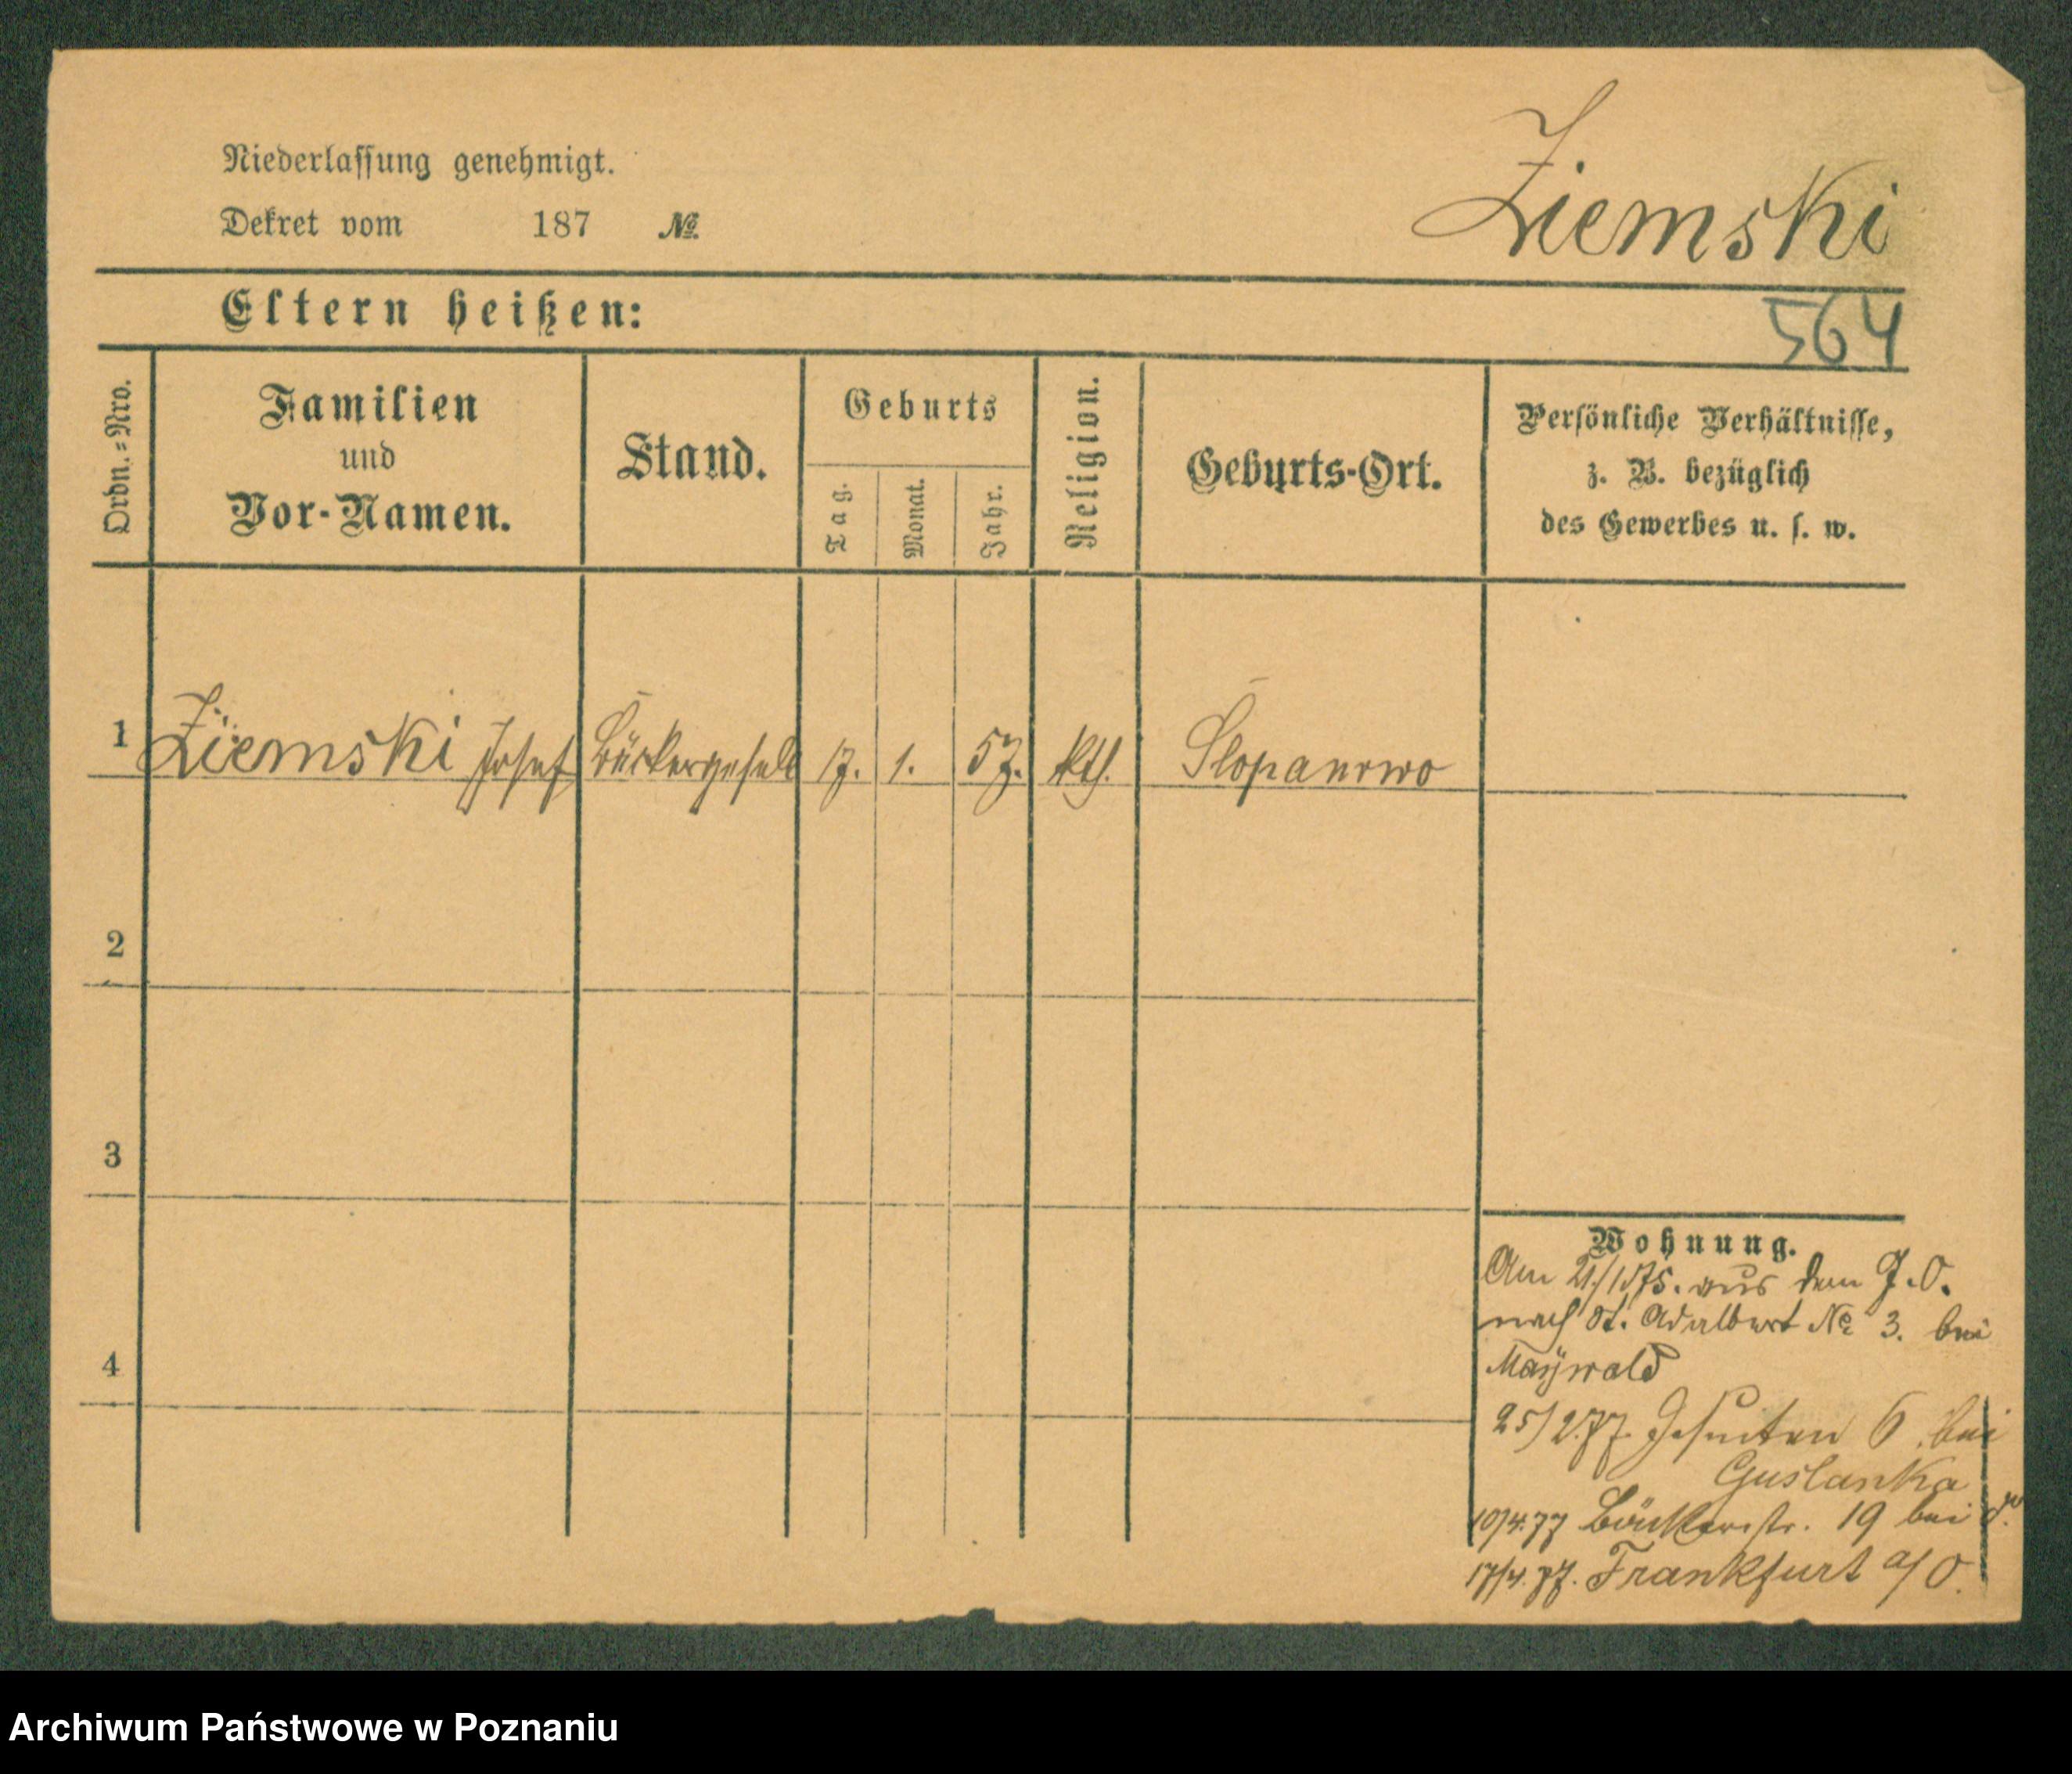 Niederlassung genehmigt.
Dekret vom 187 №
Ziemski
Eltern heißen:
564
Ordn.=Nro.
Familien
und
Vor-Namen.
Stand.
Geburts
Tag.
Monat.
Jahr.
Religion.
Geburts-Ort.
Persönliche Verhältnisse,
z. B. bezüglich
des Gewerbes u. s. w.
1 Ziemski Josef Bäckergesell 17. 1. 57. kth. Slopanowo
2
3
4
Wohnung.
Am 21/1 75. aus dem J. O.
nach St. Adalbert № 3. bei
Maÿwald
25/2.77. Jesuiten 6 bei
Guslanka
10/4.77 Böttcherstr. 19 bei d.
17/4.77. Frankfurt a/O.
Archiwum Państwowe w Poznaniu